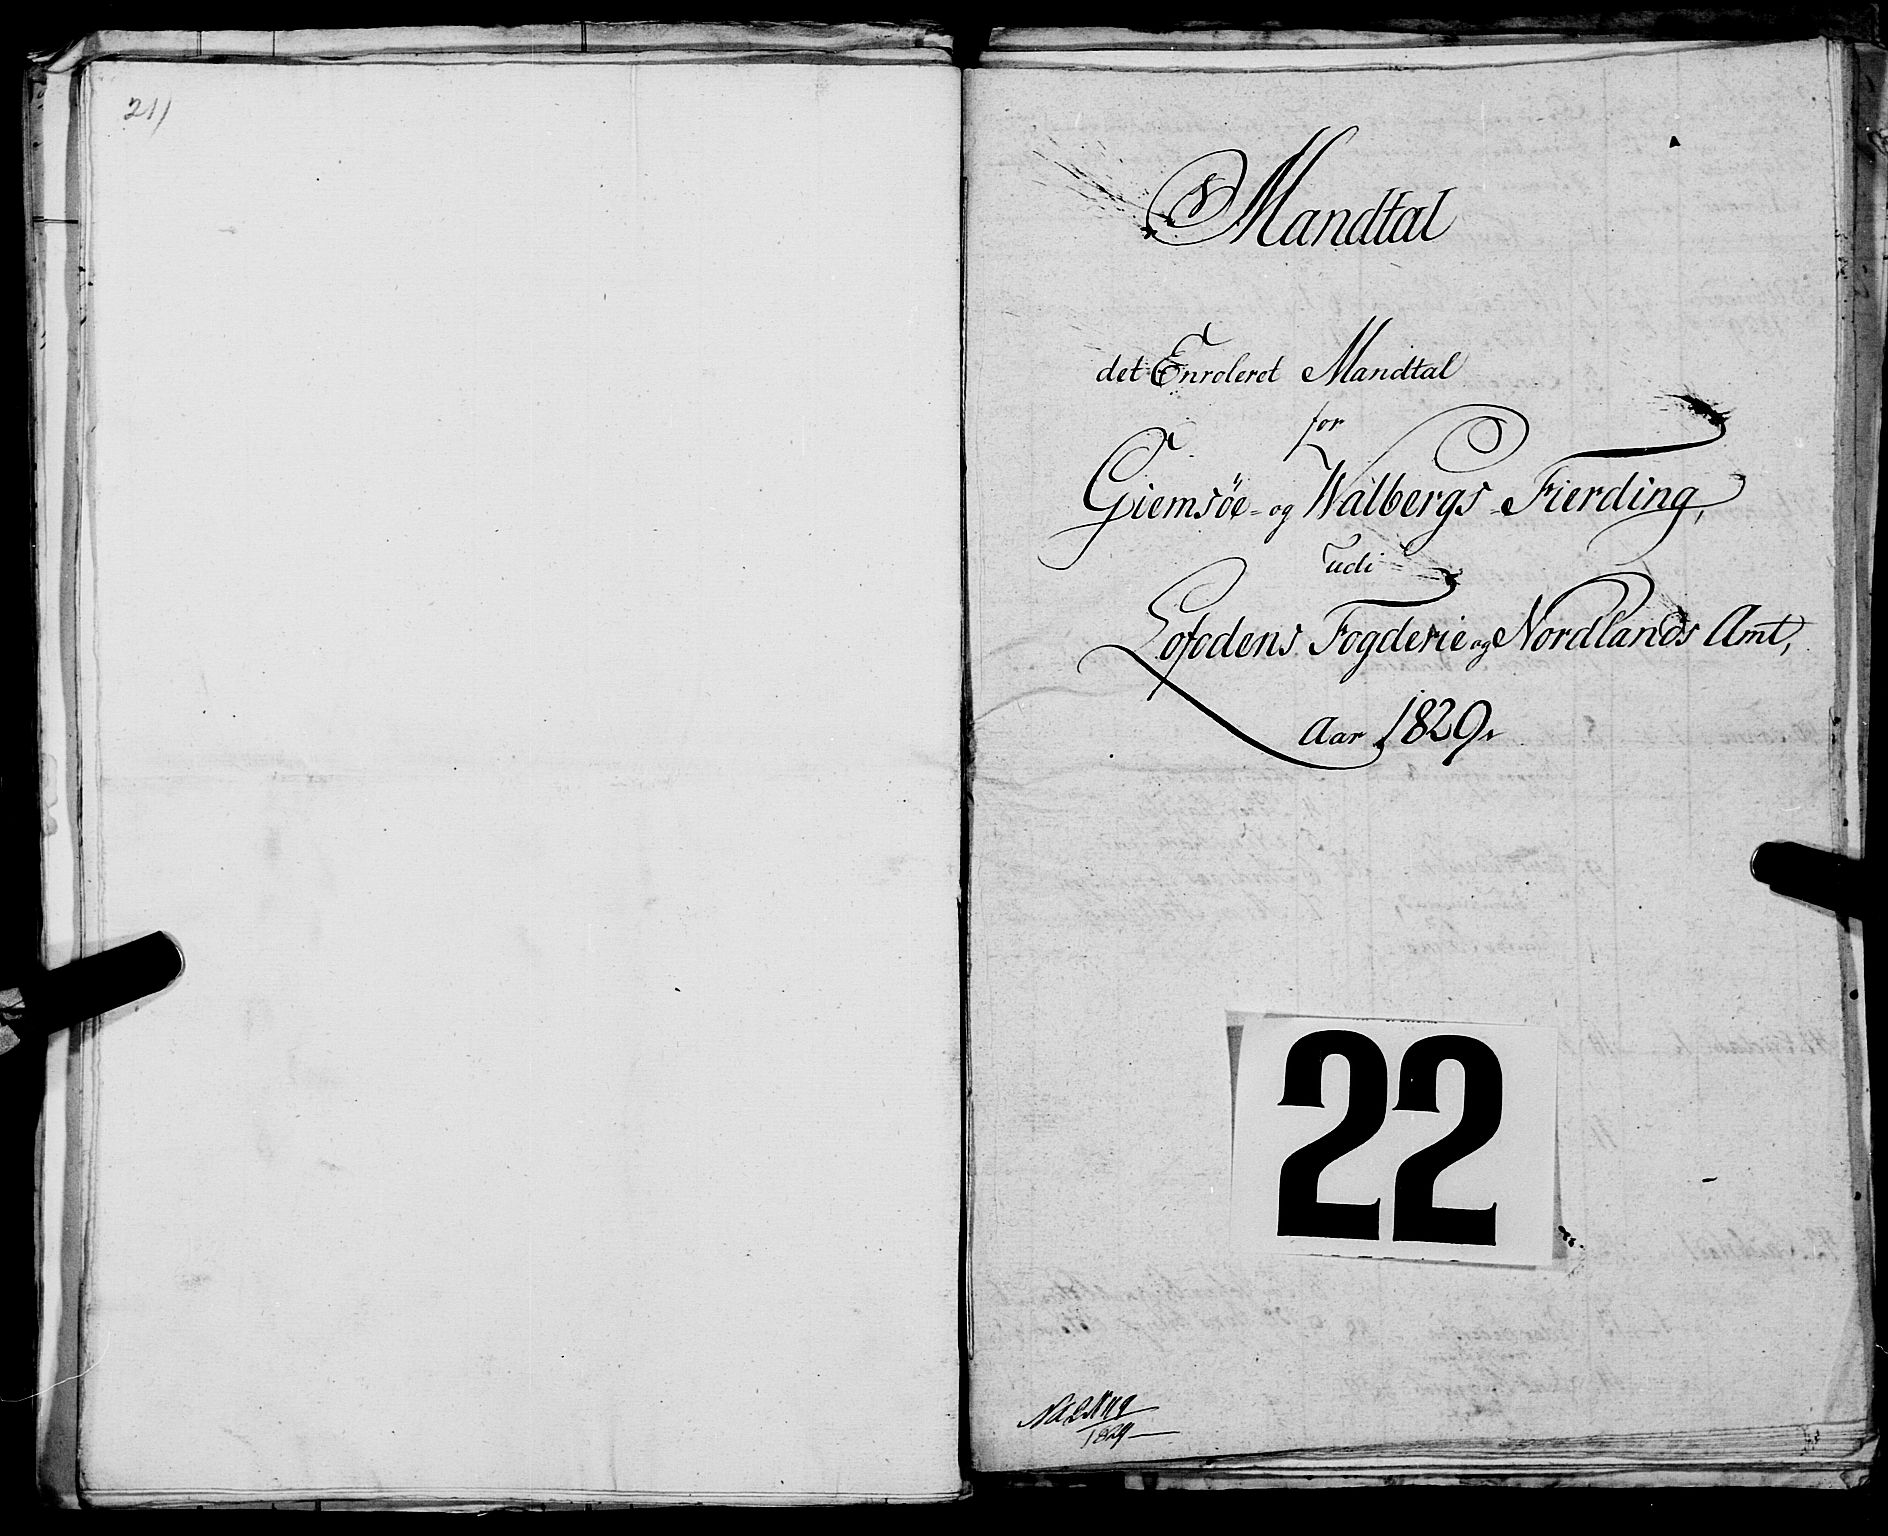 211
Mandtal
det Enroleret Mandtal
for
Giemsöe- og Walbergs Fierding,
udi
Lofodens Fogderie og Nordlands Amt,
Aar 1829.
22
1829